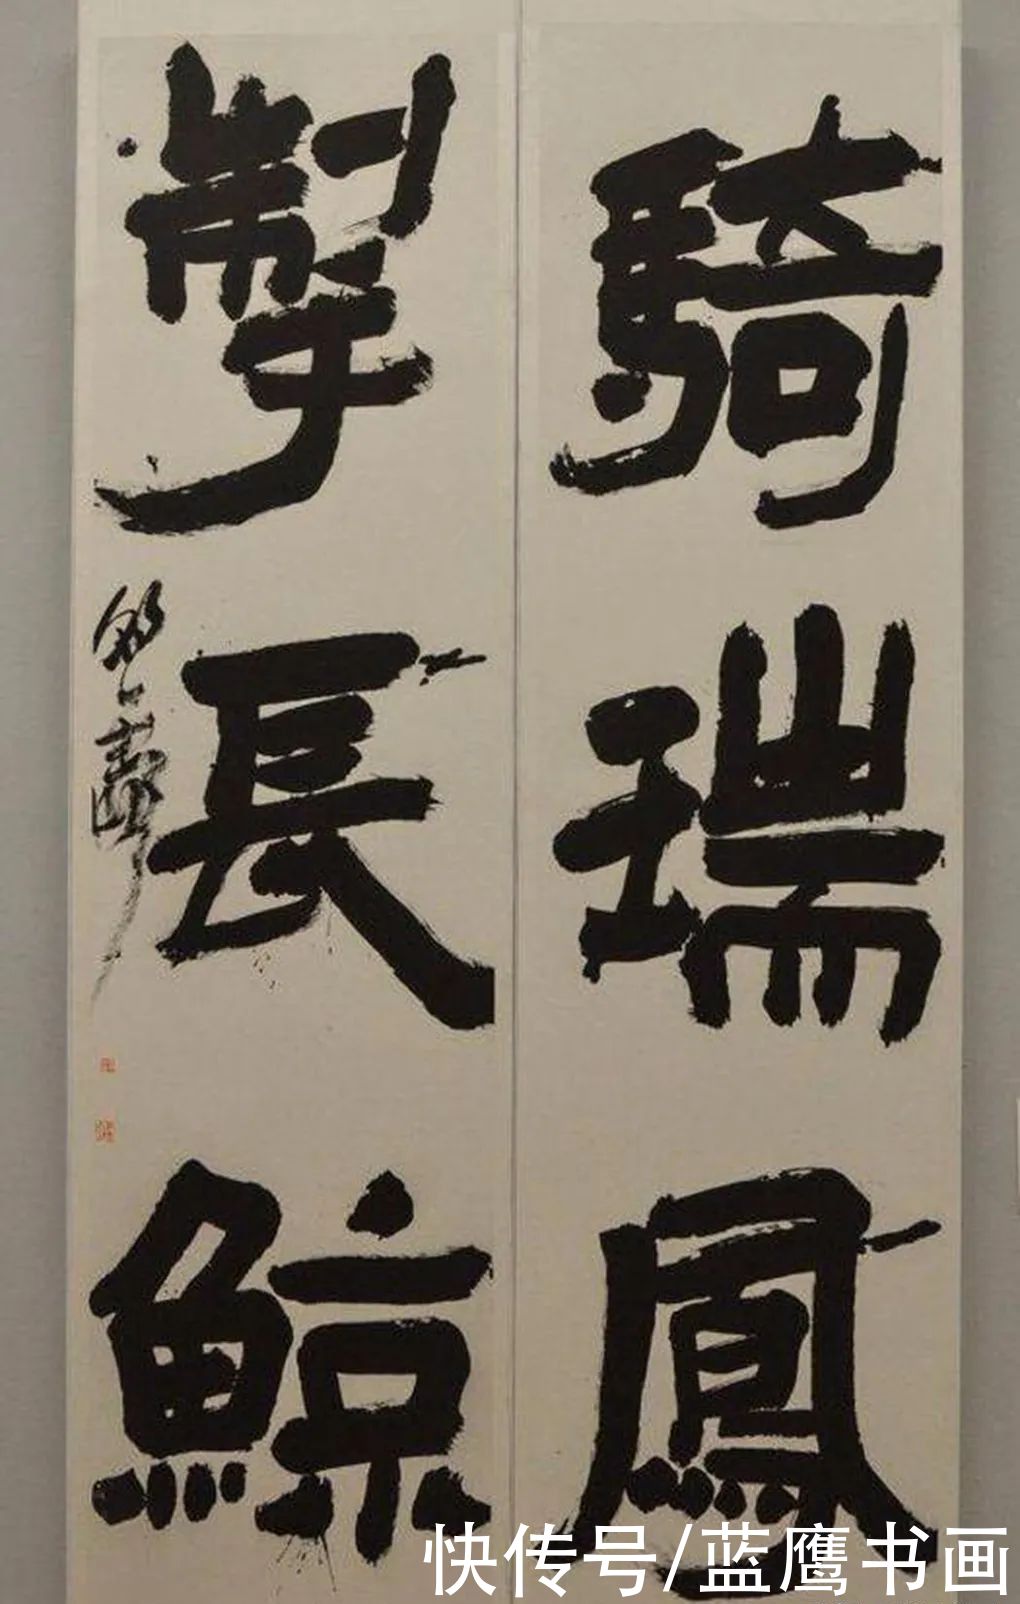 騎瑞鳳
掣長鯨
快传号/蓝鹰书画